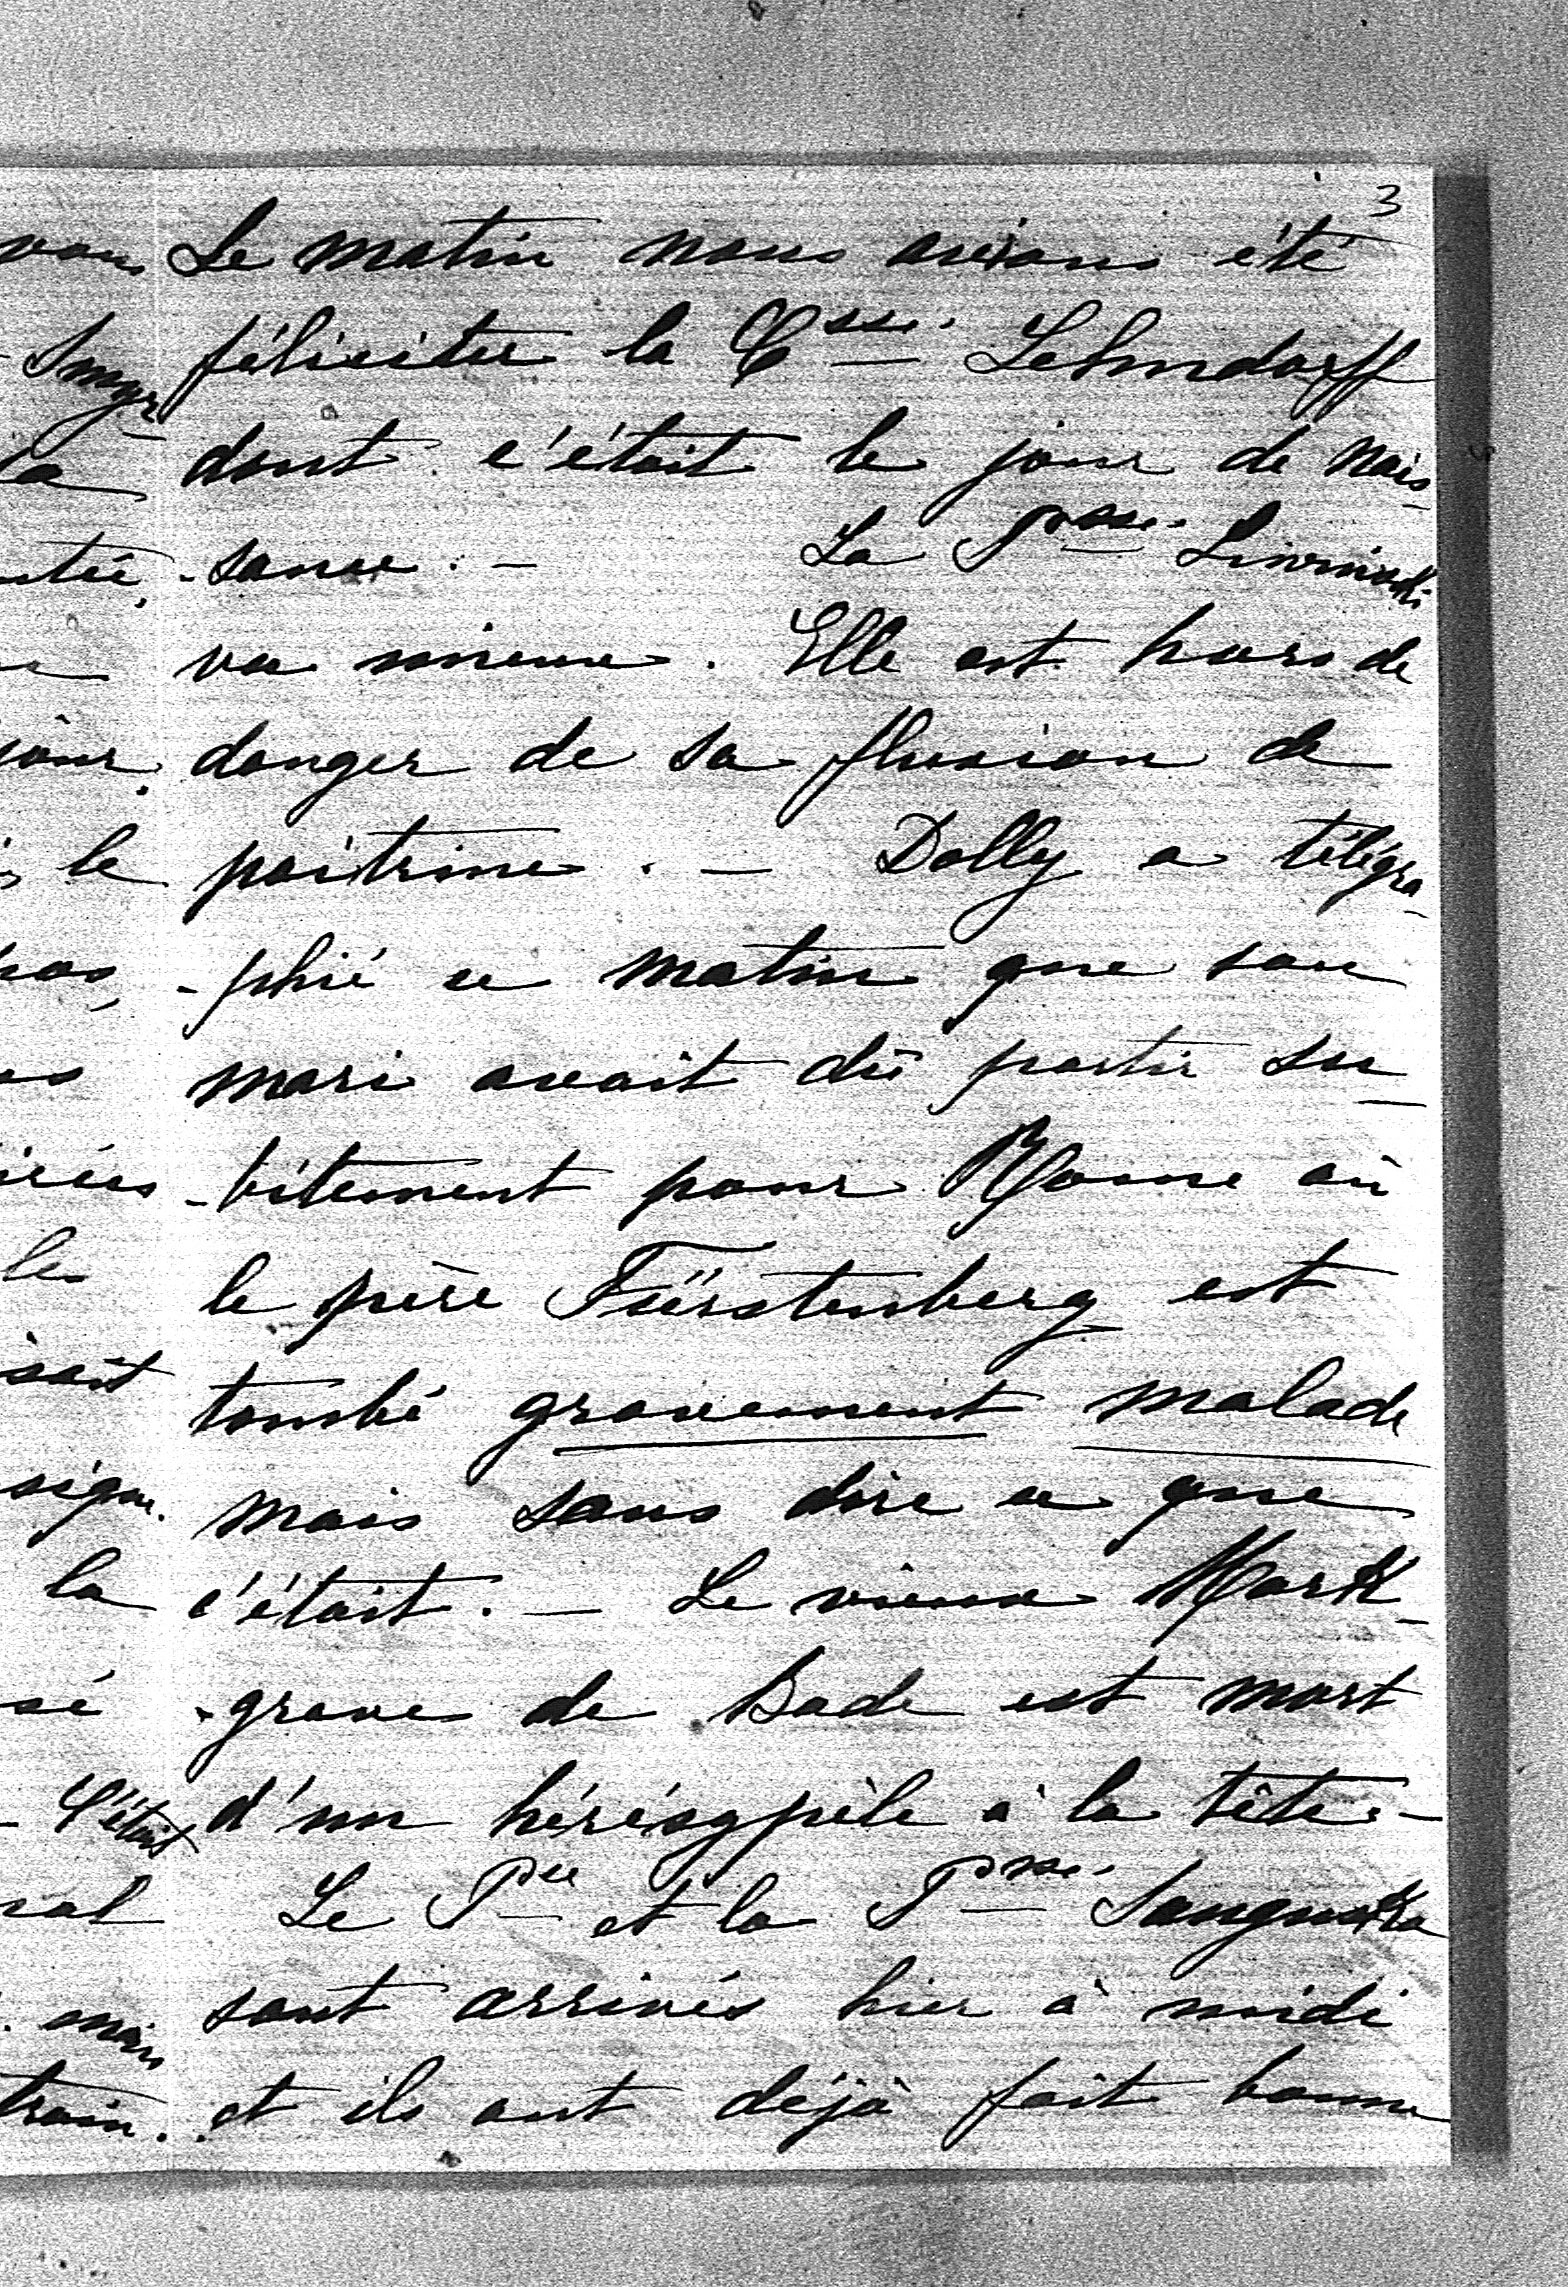 3
Le matin nous avions été
féliciter la Csse. Lehndorff
dont c'était le jour de nais-
-sance. - La Psse.
va mieux. Elle est hors de
danger de sa fluxion de
poitrine. - Dolly a télégra-
-phié ce matin que son
mari avait dû partir su-
-bitement pour Rome où
le père Fürstenberg est
tombé gravement malade
mais sans dire ce que
c'était. - Le vieux Mark-
-grave de Bade est mort
d'un hérésypèle à la tête. -
Le Pce et la Psse.
sont arrivés hier à midi
et ils ont déjà fait bonne